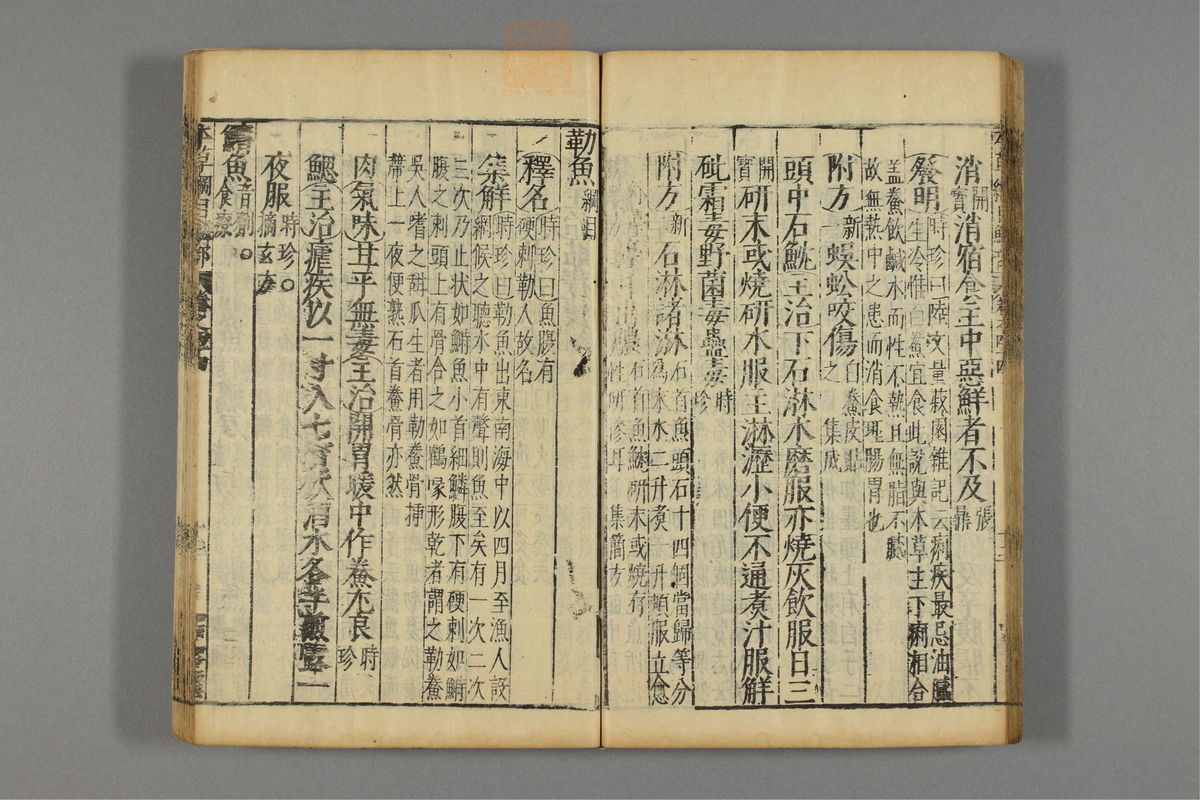 消開寶消宿食主中惡鮮者不及張鼎
發明時珍曰陸文量菽園雜記云痢疾最忌油膩
生冷惟白鯗宜食此說與本草主下痢相合
蓋鯗飲鹹水而性不熱且無脂不膩
故無熱中之患而消食理腸胃也
附方新蜈蚣咬傷白鯗皮貼
之集成
頭中石魫主治下石淋水磨服亦燒灰飲服日三
開寶研末或燒研水服主淋瀝小便不通煮汁服解
砒霜毒野菌毒蠱毒時珍
附方新石淋諸淋石首魚頭石十四個當歸等分
為末水二升煮一升頓服立愈
石首魚魫研末或燒存
性研摻耳集簡方
勒魚綱目
釋名時珍曰魚腹有
硬刺勒人故名
集解時珍曰勒魚出東南海中以四月至漁人設
網候之聽水中有聲則魚至矣有一次二次
三次乃止狀如鰣魚小首細鱗腹下有硬刺如鰣
腹之刺頭上有骨合之如鶴喙形乾者謂之勒鯗
吳人嗜之甜瓜生者用勒鯗骨插
蒂上一夜便熟石首鯗骨亦然
肉氣味甘平無毒主治開胃暖中作鯗尤良時珍
鰓主治瘧疾以一寸入七寶飲酒水各半煎露一
夜服時珍○摘玄方
鱭魚音劑食療